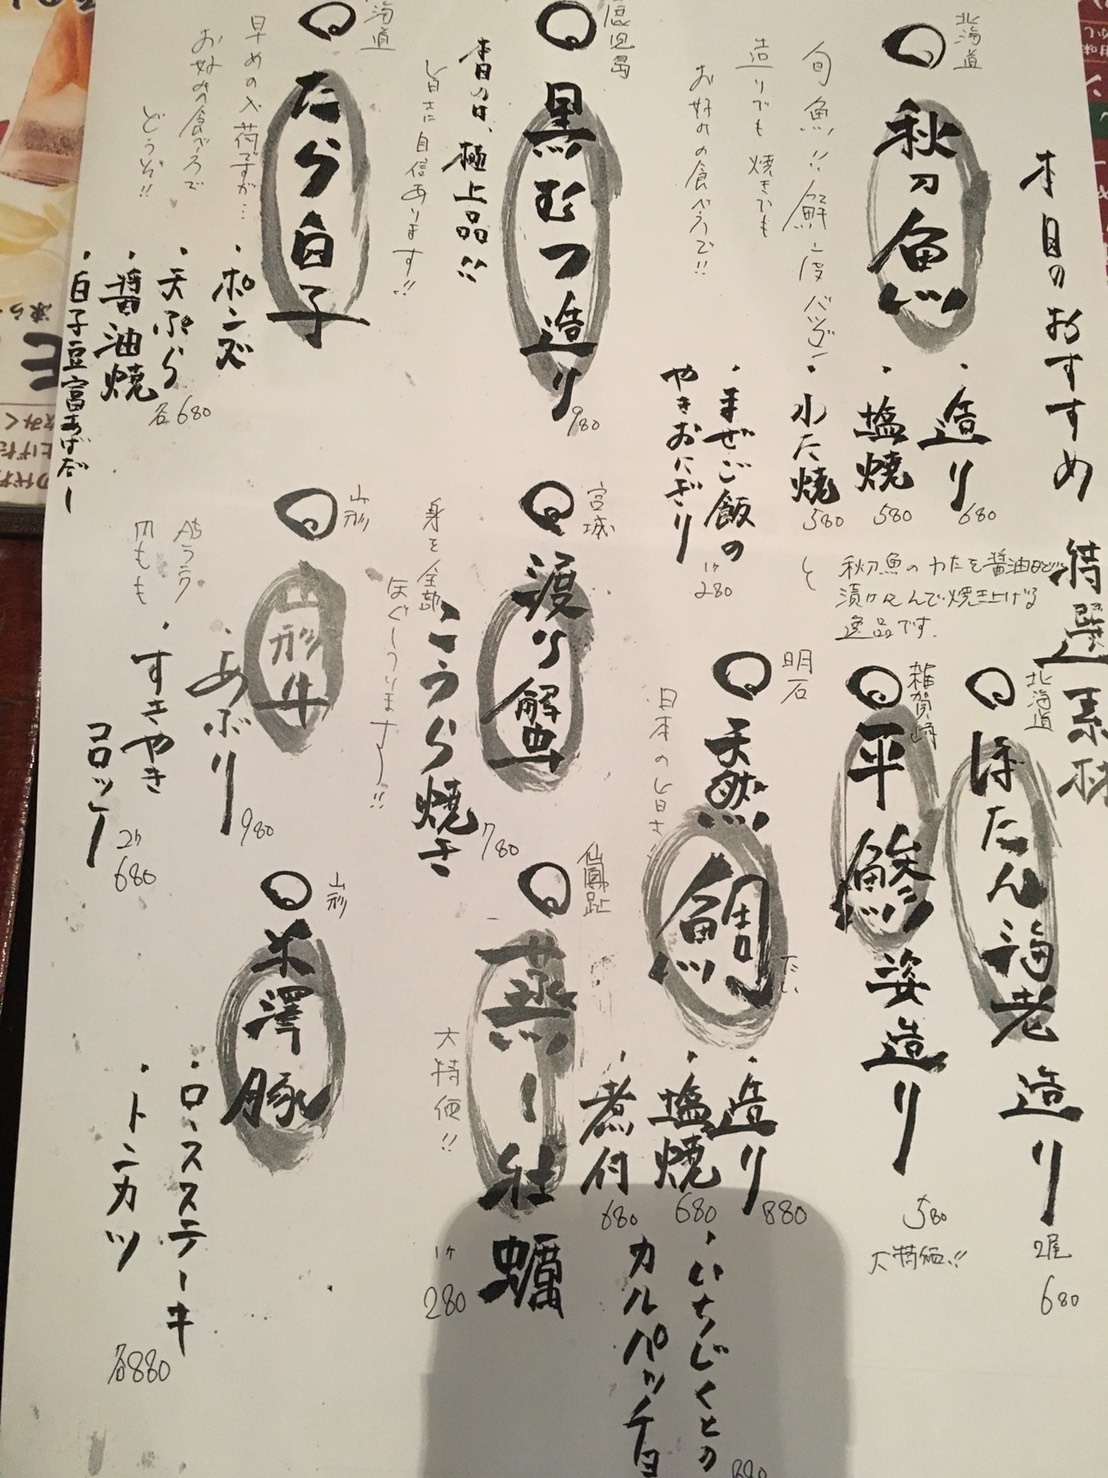 本日のおすすめ 特選素材
北海道
秋刀魚
旬魚!!鮮度バツグン
造りでも焼きでも
お好みの食べ方で!!
・造り 680
・塩焼 580
・わた焼 580
秋刀魚のわたを醤油ダレに
漬け込んで焼き上げる
逸品です。
・まぜご飯の
やきおにぎり
1ヶ280
鹿児島
黒むつ造り
980
本日の、極上品!!
旨さに自信あります!!
北海道
たら白子
早めの入荷ですが…
お好みの食べ方で
どうぞ!!
・ポンズ
・天ぷら
・醤油焼
各680
・白子豆富あげだし
北海道
ぼたん海老造り
2尾
680
雑賀崎
平鯵姿造り
580
大特価!!
明石
天然鯛
たい
日本の旨さ
・造り 880
・塩焼 680
・煮付 680
・いちじくとの
カルパッチョ
880
宮城
渡り蟹
こうら焼き
780
身を全部
ほぐしてあります!!
仙鳳趾
蒸し牡蠣
大特価!!
1ヶ
280
山形
山形牛
A5ランク
内もも
・あぶり 980
・すきやき
コロッケ
2ヶ
680
山形
米澤豚
・ロースステーキ
・トンカツ
各880